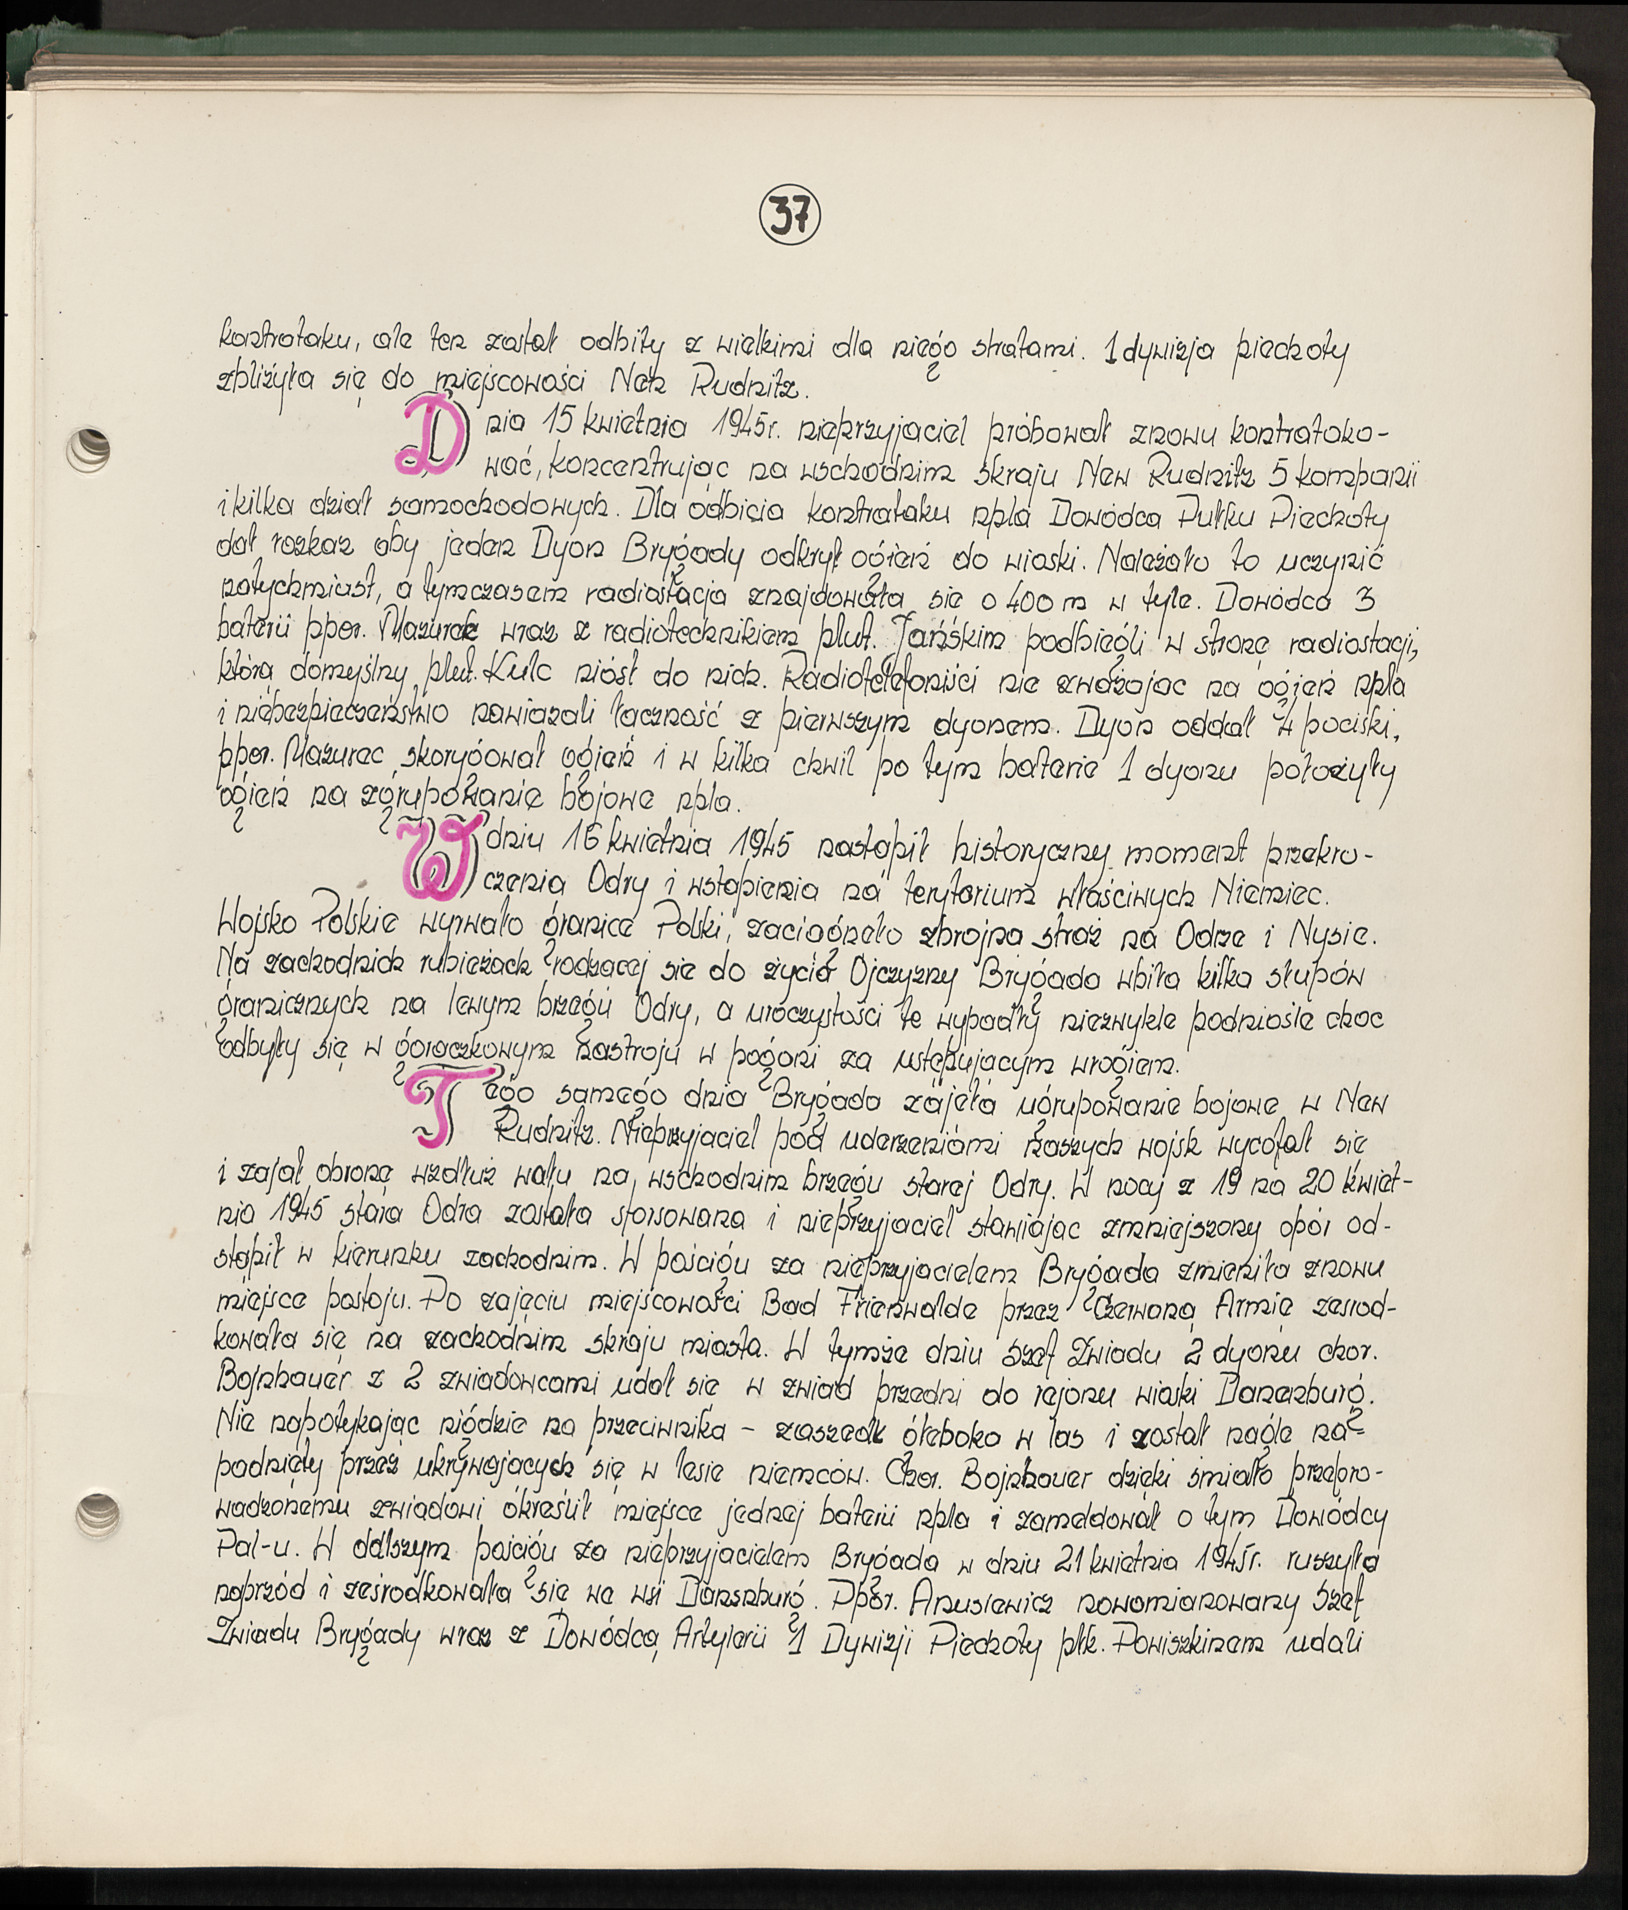 37
kontrataku, ale ten został odbity z wielkimi dla niego stratami. 1 dywizja piechoty
zbliżyła się do miejscowości Neu Rudnitz.
Dnia 15 kwietnia 1945r. nieprzyjaciel próbował znowu kontratako-
wać, koncentrując na wschodnim skraju New Rudnitz 5 kompanii
i kilka dział samochodowych. Dla odbicia kontrataku npla Dowódca Pułku Piechoty
dał rozkaz aby jeden Dyon Brygady odkrył ogień do wioski. Należało to uczynić
natychmiast, a tymczasem radiostacja znajdowała się o 400 m w tyle. Dowódca 3
baterii ppor. Mazurek wraz z radiotechnikiem plut. Jańskim podbiegli w stronę radiostacji,
którą domyślny plut. Kulc niósł do nich. Radiotelefoniści nie zważając na ogień npla
i niebezpieczeństwo nawiązali łączność z pierwszym dyonem. Dyon oddał 4 pociski,
ppor. Mazurec skorygował ogień i w kilka chwil po tym baterie 1 dyonu położyły
ogień na zgrupowanie bojowe npla.
W dniu 16 kwietnia 1945 nastąpił historyczny moment przekro-
czenia Odry i wstąpienia na terytorium właściwych Niemiec.
Wojsko Polskie wyrwało granice Polski, zaciągnęło zbrojną straż na Odrze i Nysie.
Na zachodnich rubieżach rodzącej się do życia Ojczyzny Brygada wbiła kilka słupów
granicznych na lewym brzegu Odry, a uroczystości te wypadły niezwykle podniośle choć
odbyły się w gorączkowym nastroju w pogoni za ustępującym wrogiem.
Tego samego dnia Brygada zajęła ugrupowanie bojowe w New
Rudnitz. Nieprzyjaciel pod uderzeniami naszych wojsk wycofał się
i zajął obronę wzdłuż wału na wschodnim brzegu starej Odry. W nocy z 19 na 20 kwiet-
nia 1945 stara Odra została sforsowana i nieprzyjaciel stawiając zmniejszony opór od-
stąpił w kierunku zachodnim. W pościgu za nieprzyjacielem Brygada zmieniła znowu
miejsce postoju. Po zajęciu miejscowości Bad Frienwalde przez Czerwoną Armię ześrod-
kowała się na zachodnim skraju miasta. W tymże dniu Szef Zwiadu 2 dyonu chor.
Bojnbauer z 2 zwiadowcami udał się w zwiad przedni do rejonu wioski Danenburg.
Nie napotykając nigdzie na przeciwnika - zaszedł głęboko w las i został nagle na-
padnięty przez ukrywających się w lesie niemców. Chor. Bojnbauer dzięki śmiało przepro-
wadzonemu zwiadowi określił miejsce jednej baterii npla i zameldował o tym Dowódcy
Pal-u. W dalszym pościgu za nieprzyjacielem Brygada w dniu 21 kwietnia 1945r. ruszyła
naprzód i ześrodkowała się we wsi Danenburg. Ppor. Anusiewicz nowomianowany Szef
Zwiadu Brygady wraz z Dowódcą Artylerii 1 Dywizji Piechoty płk. Powiszkinem udali